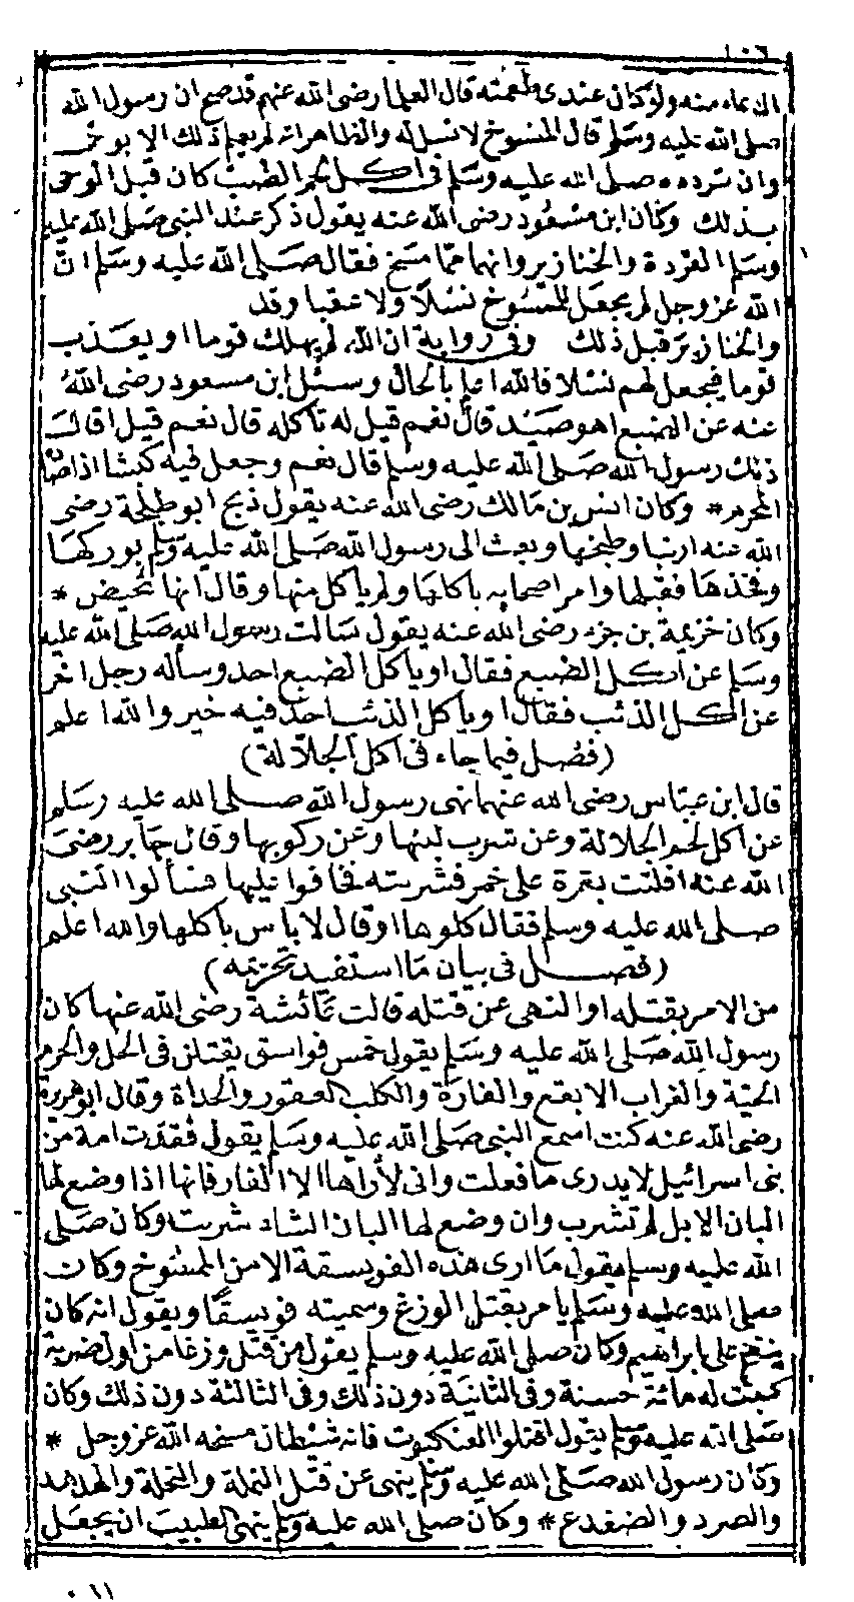 ١٠٦
الدعاء منه ولو كان عندى طعمته قال العلما رضى الله عنهم قد صح ان رسول الله
صلى الله عليه وسلم قال الممسوخ لا نسل له والظاهر انه لم يعلم ذلك الا بوحى
وان تردده صلى الله عليه وسلم فى اكل لحم الضب كان قبل الوحى
بذلك وكان ابن مسعود رضى الله عنه يقول ذكر عند النبى صلى الله عليه
وسلم القردة والخنازير وانهما مما مسخ فقال صلى الله عليه وسلم ان
الله عز وجل لم يجعل للممسوخ نسلا ولا عقبا وقد
والخنازير قبل ذلك وفى رواية ان الله لم يهلك قوما او يعذب
قوما فيجعل لهم نسلا فالله اعلم بالحال وسئل ابن مسعود رضى الله
عنه عن الضبع اهو صيد قال نعم قيل له تأكله قال نعم قيل اقال
ذلك رسول الله صلى الله عليه وسلم قال نعم وجعل فيه كبشا اذا صاده
المحرم * وكان انس بن مالك رضى الله عنه يقول ذبح ابو طلحة رضى
الله عنه ارنبا وطبخها وبعث الى رسول الله صلى الله عليه وسلم بوركها
وفخذها فقبلها وامر اصحابه باكلها ولم ياكل منها وقال انها تحيض *
وكان خزيمة بن جزء رضى الله عنه يقول سالت رسول الله صلى الله عليه
وسلم عن اكل الضبع فقال او ياكل الضبع احد وسأله رجل اخر
عن اكل الذئب فقال او ياكل الذئب احد فيه خير والله اعلم
(فصل فيما جاء فى اكل الجلالة)
قال ابن عباس رضى الله عنهما نهى رسول الله صلى الله عليه وسلم
عن اكل لحم الجلالة وعن شرب لبنها وعن ركوبها وقال جابر رضى
الله عنه افلتت بقرة على خمر فشربته فخافوا عليها فسألوا النبى
صلى الله عليه وسلم فقال كلوها او قال لا باس باكلها والله اعلم
(فصل فى بيان ما استفيد تحريمه)
من الامر بقتله او النهى عن قتله قالت عائشة رضى الله عنها كان
رسول الله صلى الله عليه وسلم يقول خمس فواسق يقتلن فى الحل والحرم
الحية والغراب الابقع والفارة والكلب العقور والحداة وقال ابو هريرة
رضى الله عنه كنت اسمع النبى صلى الله عليه وسلم يقول فقدت امة من
بنى اسرائيل لا يدرى ما فعلت وانى لا أراها الا الفار فانها اذا وضع لها
البان الابل لم تشرب وان وضع لها البان الشاء شربت وكان صلى
الله عليه وسلم يقول ما ارى هذه الفويسقة الا من الممسوخ وكان
صلى الله عليه وسلم يامر بقتل الوزغ وسميته فويسقا ويقول انه كان
ينفخ على ابراهيم وكان صلى الله عليه وسلم يقول من قتل وزغا من اول ضربة
كتبت له مائة حسنة وفى الثانية دون ذلك وفى الثالثة دون ذلك وكان
صلى الله عليه وسلم يقول اقتلوا العنكبوت فانه شيطان مسخه الله عز وجل *
وكان رسول الله صلى الله عليه وسلم ينهى عن قتل النملة والنحلة والهدهد
والصرد والضفدع * وكان صلى الله عليه وسلم ينهى الطبيب ان يجعل